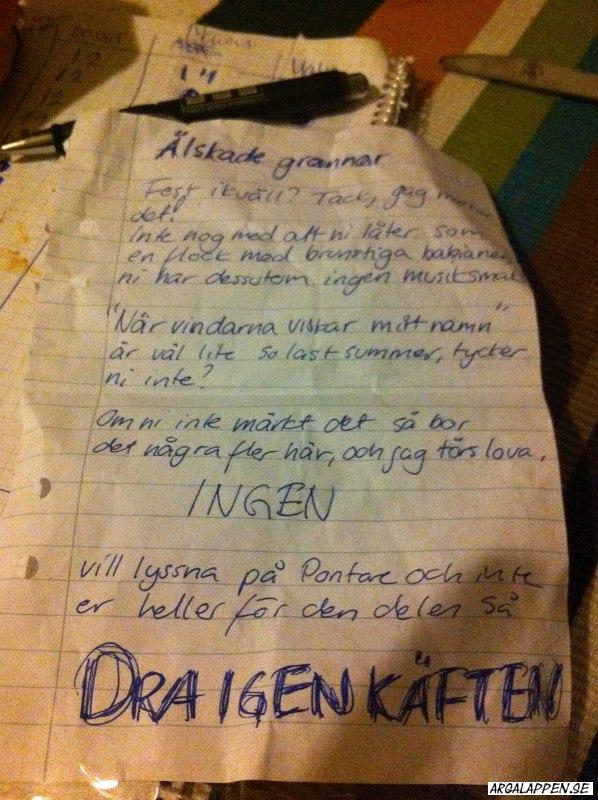 Älskade grannar
Fest ikväll? Tack, jag märker
det!
Inte nog med att ni låter som
en flock med brunstiga babianer
ni har dessutom ingen musiksmak
"När vindarna viskar mitt namn"
är väl lite so last summer, tycker
ni inte?
Om ni inte märkt det så bor
det några fler här, och jag törs lova,
INGEN
vill lyssna på Pontare och inte
er heller för den delen så
DRA IGEN KÄFTEN
12
12
14
ARGALAPPEN.SE